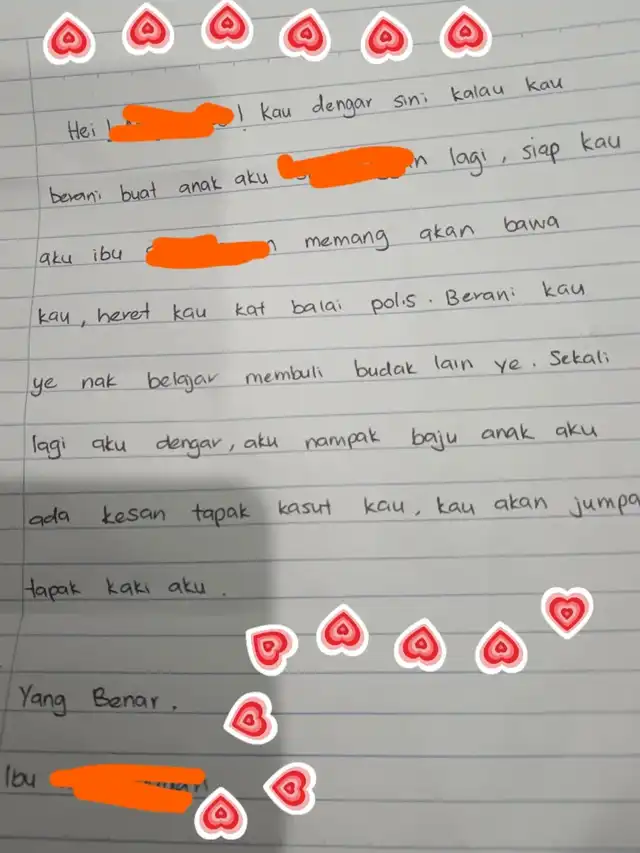 Hei ! kau dengar sini kalau kau
berani buat anak aku lagi, siap kau
aku ibu memang akan bawa
kau, heret kau kat balai polis. Berani kau
ye nak belajar membuli budak lain ye. Sekali
lagi aku dengar, aku nampak baju anak aku
ada kesan tapak kasut kau, kau akan jumpa
tapak kaki aku.
Yang Benar.
Ibu